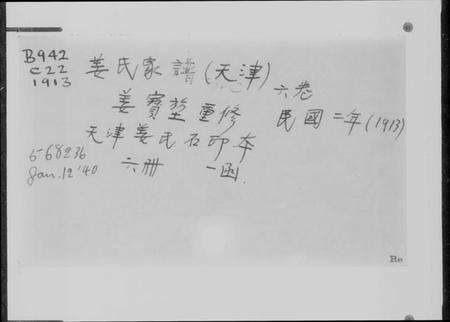 B942
C22
1913
姜氏家譜(天津)
六卷
姜寶堃重修
民國二年(1913)
天津姜氏石印本
六冊 一函.
568236
Jan. 12 '40